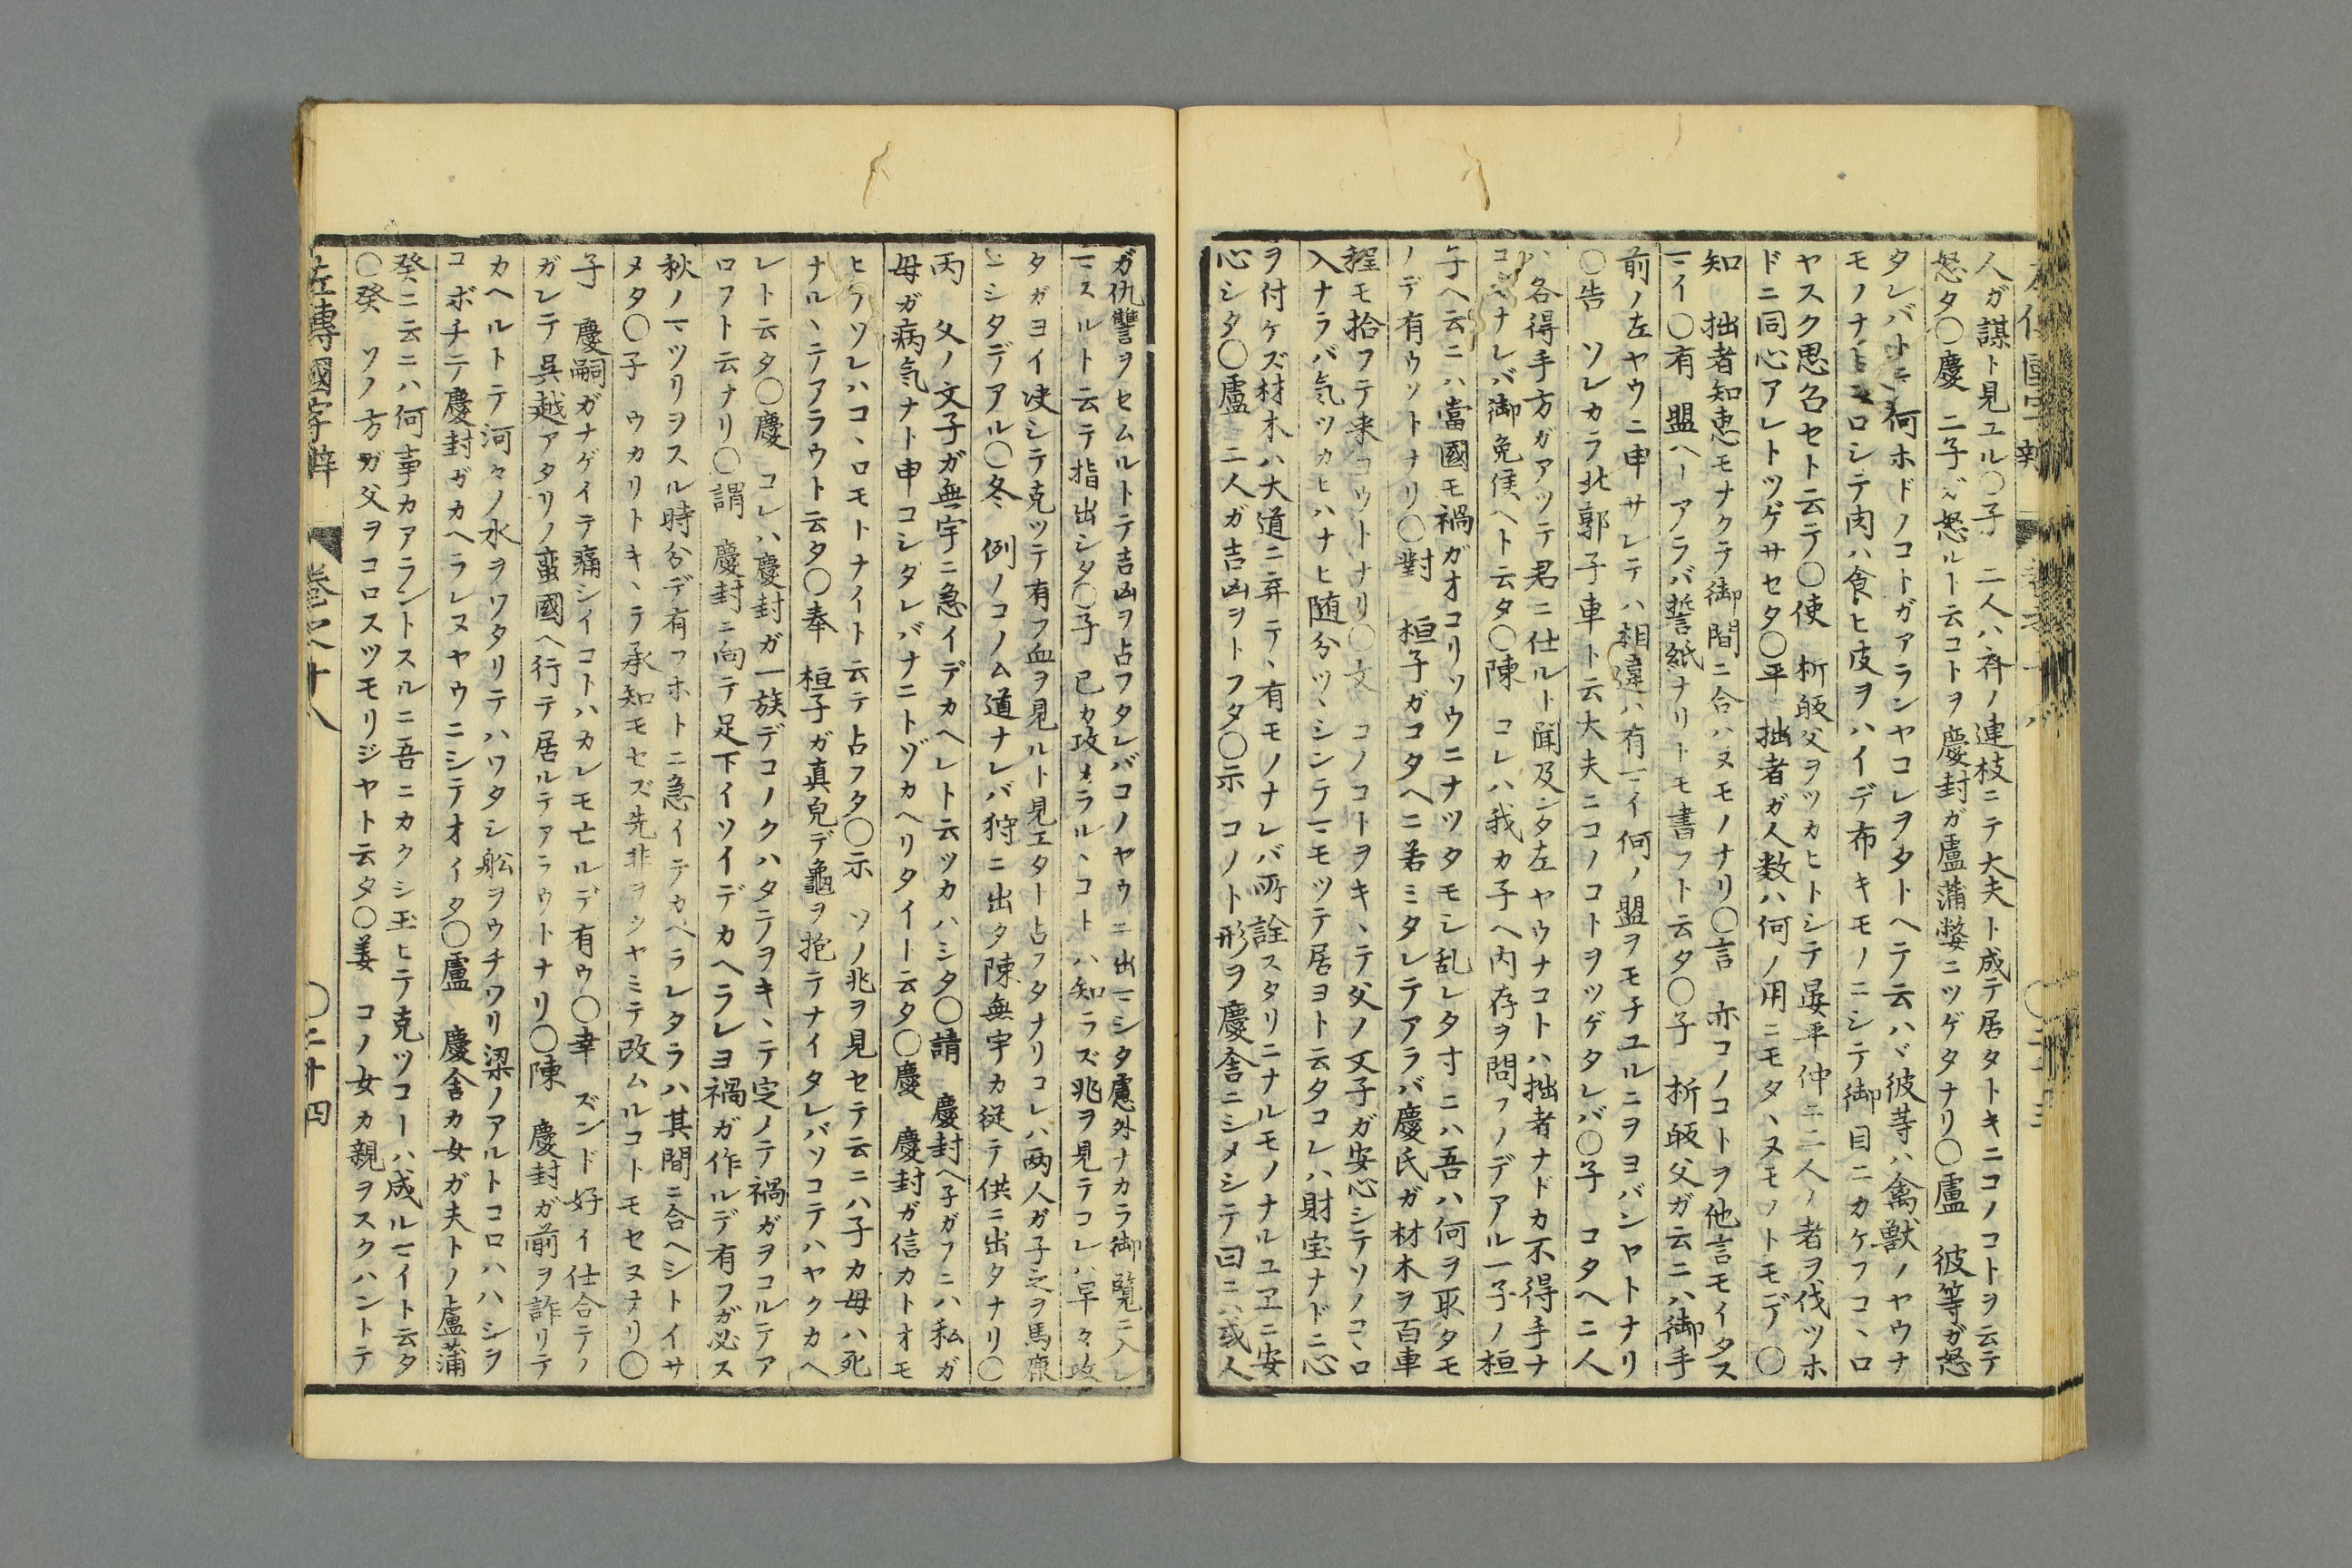 人ガ謀ト見ユル〇子 二人ハ斉ノ連枝ニテ大夫ト成テ居タトキニコノコトヲ云テ
怒タ〇慶 二子ガ怒ルト云コトヲ慶封ガ盧蒲嫳ニツゲタナリ〇盧 彼等ガ怒
タレバトテ何ホドノコトガアランヤコレヲタトヘテ云ハヾ彼等ハ禽獣ノヤウナ
モノナトコロシテ肉ハ食ヒ皮ヲハイデ布キモノニシテ御目ニカケフコヽロ
ヤスク思召セト云テ〇使 析皈父ヲツカヒトシテ晏平仲ニ二人ノ者ヲ伐ツホ
ドニ同心アレトツゲサセタ〇平 拙者ガ人数ハ何ノ用ニモタヽヌモノトモデ〇
知 拙者知恵モナクテ御間ニ合ハヌモノナリ〇言 亦コノコトヲ他言モイタス
マイ〇有 盟ヘーアラバ誓紙ナリトモ書フト云タ〇子 析皈父ガ云ニハ御手
前ノ左ヤウニ申サレテハ相違ハ有マイ何ノ盟ヲモチユルニヲヨバンヤトナリ
〇告 ソレカラ北郭子車ト云大夫ニコノコトヲツゲタレバ〇子 コタヘニ人
ハ各得手方ガアツテ君ニ仕ルト聞及ンタ左ヤウナコトハ拙者ナドカ不得手ナ
コトナレバ御免候ヘト云タ〇陳 コレハ我カ子ヘ内存ヲ問フノデアル一子ノ桓
子ヘ云ニハ當國モ禍ガオコリソウニナツタモシ乱レタ寸ニハ吾ハ何ヲ取タモ
ノデ有ウソトナリ〇對 桓子ガコタヘニ若ミタレテアラバ慶氏ガ材木ヲ百車
程モ拾フテ来コウトナリ〇文 コノコトヲキヽテ父ノ文子ガ安心シテソノコヽロ
入ナラバ気ツカヒハナヒ随分ツヽシンテマモツテ居ヨト云タコレハ財宝ナドニ心
ヲ付ケズ材木ハ大道ニ弃テヽ有モノナレバ所詮スタリニナルモノナルユヱニ安
心シタ〇盧 二人ガ吉凶ヲトフタ〇示 コノト形ヲ慶舎ニシメシテ曰ニハ或人
ガ仇讐ヲセムルトテ吉凶ヲ占フタレバコノヤウニ出マシタ慮外ナカラ御覧ニ入レ
マスルト云テ指出シタ〇子 已カ攻メラルヽコトハ知ラズ兆ヲ見テコレハ早々攻
タガヨイ决シテ克ツテ有フ血ヲ見ルト見エタト占フタナリコレハ両人ガ子之ヲ馬鹿
ニシタデアル〇冬 例ノコノム道ナレバ狩ニ出タ陳無宇カ従テ供ニ出タナリ〇
丙 父ノ文子ガ無宇ニ急イデカヘレト云ツカハシタ〇請 慶封ヘ子ガフニハ私ガ
母ガ病気ナト申コシタレバナニトゾカヘリタイト云タ〇慶 慶封ガ信カトオモ
ヒフソレハコヽロモトナイト云テ占フタ〇示 ソノ兆ヲ見セテ云ニハ子カ母ハ死
ナルヽニテアラウト云タ〇奉 桓子ガ真皃デ龜ヲ抱テナイタレバソコテハヤクカヘ
レト云タ〇慶 コレハ慶封ガ一族デコノクハタテヲキヽテ定ノテ禍ガヲコルテア
ロフト云ナリ〇謂 慶封ニ向テ足下イソイデカヘラレヨ禍ガ作ルデ有フガ必ス
秋ノマツリヲスル時分デ有フホトニ急イテカヘラレタラハ其間ニ合ヘシトイサ
ヌタ〇子 ウカリトキヽラ承知モセズ先非ヲシヤミテ改ムルコトモセヌナリ〇
子 慶嗣ガナゲイテ痛シイコトハカレモ亡ルデ有ウ〇幸 ズンド好イ仕合テノ
ガレテ呉越アタリノ蛮國ヘ行テ居ルテアラウトナリ〇陳 慶封ガ前ヲ詐リテ
カヘルトテ河々ノ水ヲワタリテハワタシ舩ヲウチワリ梁ノアルトコロハハシヲ
コボチテ慶封ガカヘラレヌヤウニシテオイタ〇盧 慶舎カ女ガ夫トノ盧蒲
癸ニ云ニハ何事カアラントスルニ吾ニカクシ玉ヒテ克ツコーハ成ルマイト云タ
〇癸 ソノ方ガ父ヲコロスツモリジヤト云タ〇姜 コノ女カ親ヲスクハントテ
左傳國字辯 巻之十八 〇二十四